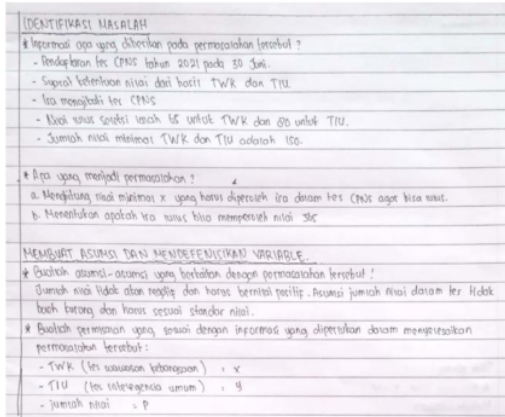 IDENTIFIKASI MASALAH
* Informasi apa yang diberikan pada permasalahan tersebut ?
- Pendaftaran tes CPNS tahun 2021 pada 30 Juni.
- Syarat ketentuan nilai dari hasil TWK dan TIU
- Ira mengikuti tes CPNS
- Nilai lulus seleksi ialah 65 untuk TWK dan 80 untuk TIU.
- Jumlah nilai minimal TWK dan TIU adalah 150.
* Apa yang menjadi permasalahan ?
a. Menghitung nilai minimal x yang harus diperoleh ira dalam tes CPNS agar bisa lulus.
b. Menentukan apakah ira lulus bila memperoleh nilai
MEMBUAT ASUMSI DAN MENDEFENISIKAN VARIABLE.
* Buatlah asumsi-asumsi yang berkaitan dengan permasalahan tersebut !
Jumlah nilai tidak akan negatif dan harus bernilai positif. Asumsi jumlah nilai dalam tes tidak
boleh kurang dan harus sesuai standar nilai.
* Buatlah permisalan yang sesuai dengan informasi yang diperlukan dalam menyelesaikan
permasalahan tersebut :
- TWK (tes wawasan kebangsaan) : x
- TIU (tes intelegencia umum) : y
- jumlah nilai : P